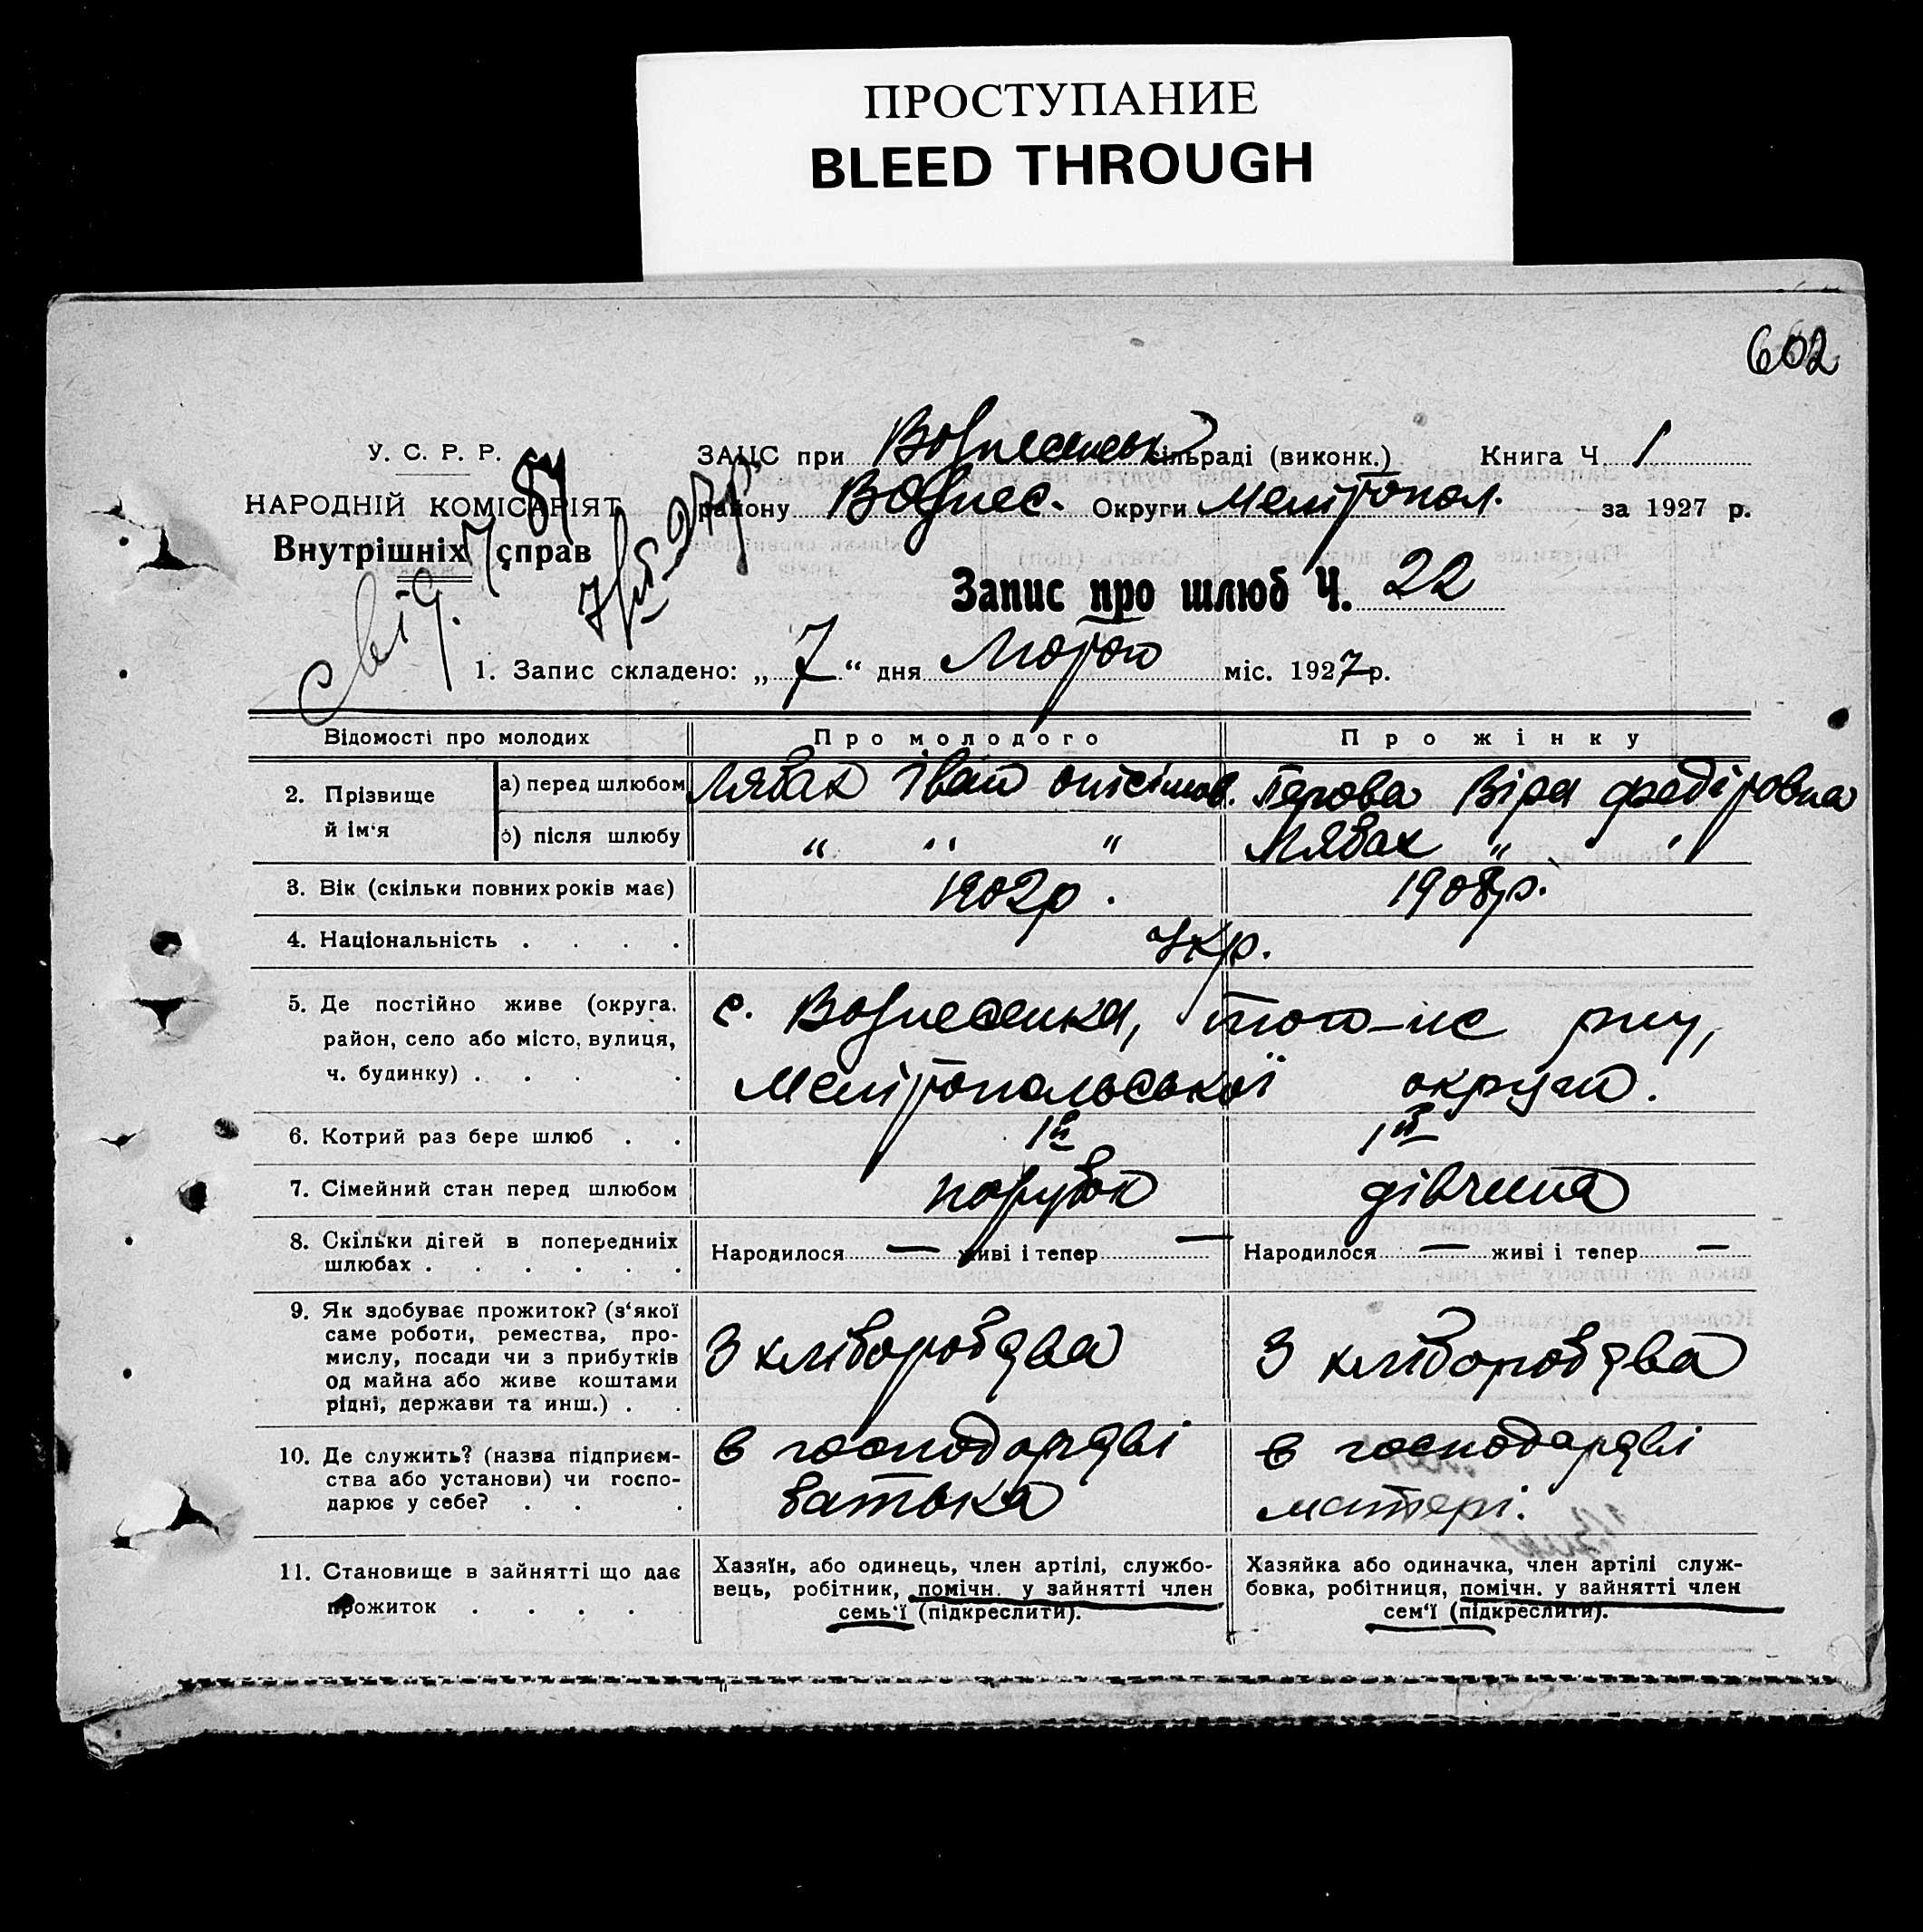 ПРОСТУПАНИЕ
BLEED THROUGH
602
У. С. Р. Р.
НАРОДНІЙ КОМІСАРІЯТ
Внутрішніх справ
свід. 7
84
7/ІІ-27р
ЗАЦС при Вознесенськ сільраді (виконк.) Книга Ч. 1
району Вознес. Округи Мелітопол. за 1927 р.
Запис про шлюб Ч. 22
1. Запис складено: „ 7 “ дня Лютого міс. 1927 р.
Відомості про молодих Про молодого Про жінку
2. Прізвище й ім‘я
а) перед шлюбом Лябах Іван Онісімов. Перова Віра Федіровна
б) після шлюбу „ „ „ Лябах „ „
3. Вік (скільки повних років має) 1902р. 1908р.
4. Національність . . . . Укр.
5. Де постійно живе (округа, с. Вознесенка, того-же р-ну,
район, село або місто, вулиця, Мелітопольської округи.
ч. будинку) . . . .
6. Котрий раз бере шлюб . . 1й 1й
7. Сімейний стан перед шлюбом парубок дівчина
8. Скільки дітей в попередниіх Народилося — живі і тепер — Народилося — живі і тепер —
шлюбах . . . . . .
9. Як здобуває прожиток? (з‘якої
саме роботи, ремества, про- З хліборобства З хліборобства
мислу, посади чи з прибутків
од майна або живе коштами
рідні, держави та инш.) . .
10. Де служить? (назва підприєм- в господарстві в господарстві
ства або установи) чи госпо- батька матері.
дарює у себе? . . .
11. Становище в зайнятті що дає
прожиток . . . .
Хазяїн, або одинець, член артілі, службо-
вець, робітник, помічн. у зайнятті член
семь‘ї (підкреслити).
Хазяйка або одиначка, член артілі служ-
бовка, робітниця, помічн. у зайнятті член
сем‘ї (підкреслити).